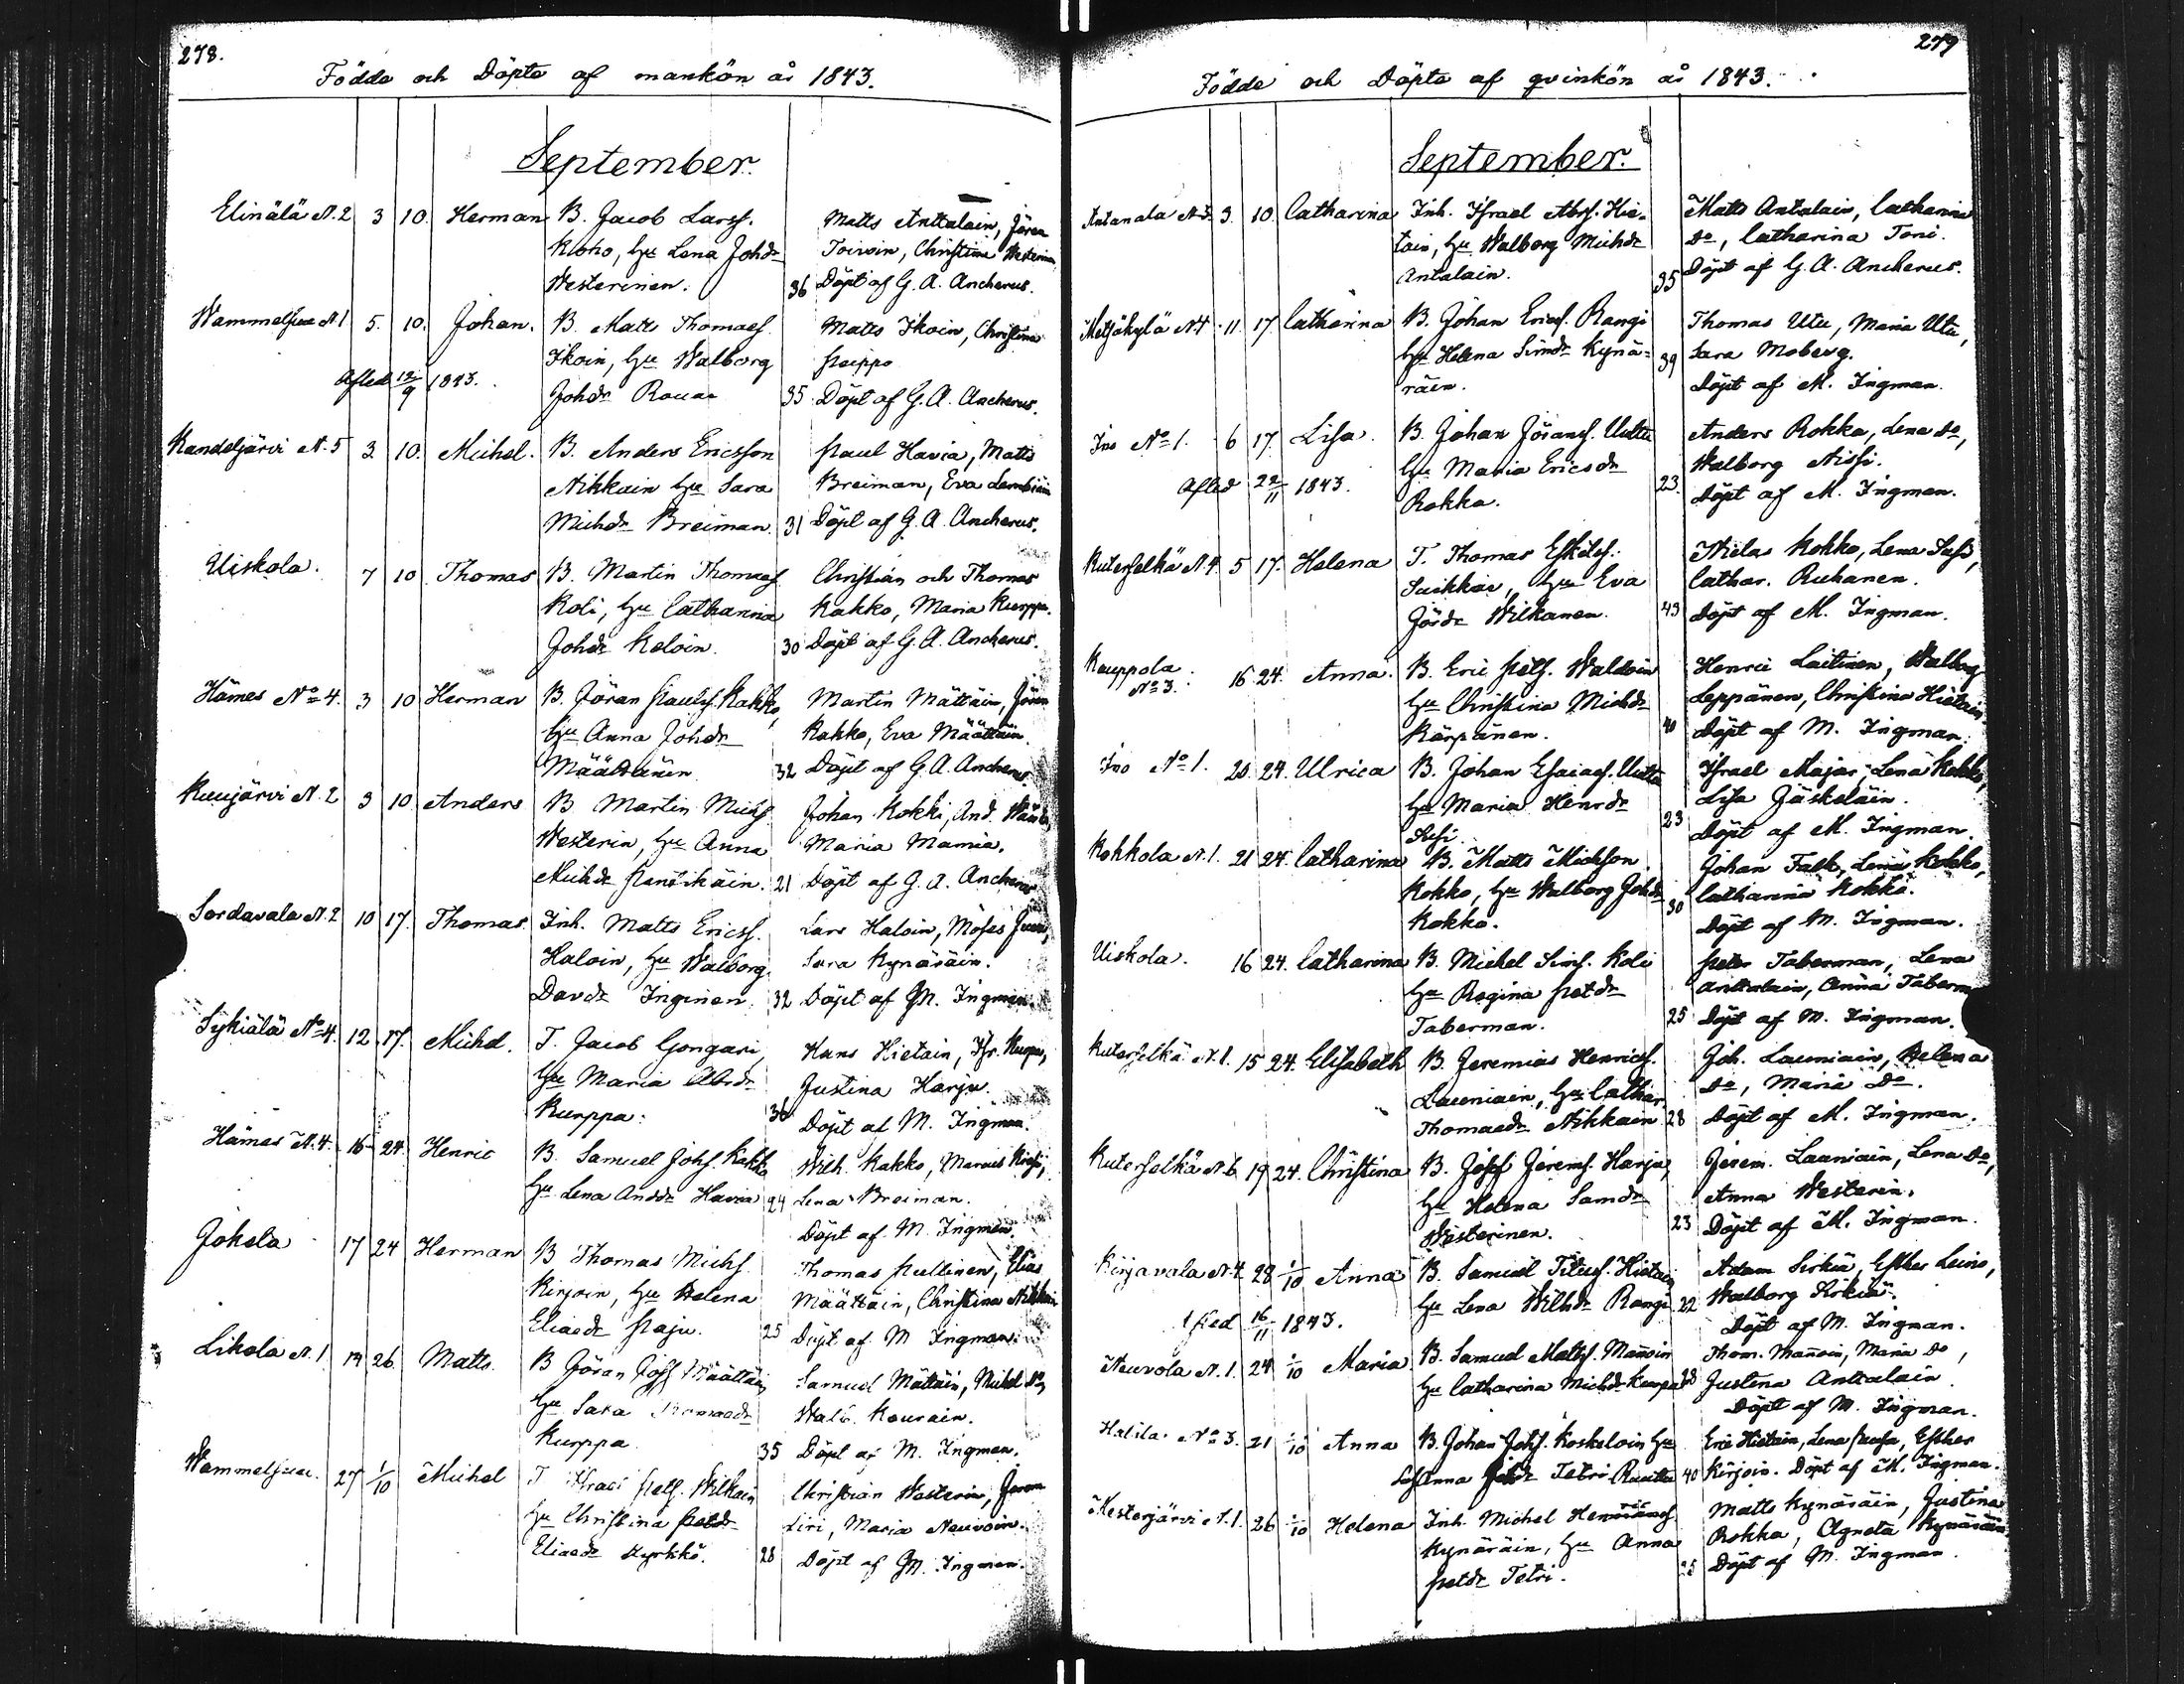 278.
Födde och Döpte af mankön år 1843.
September.
Elinälä N. 2 3 10. Herman B. Jacob Larss. Matts Anttalain, Jören
Koho, hu Lena Johdr Toivoin, Christina Westerinen
Westerinen. 36 Döpt af G. A. Ancherus.
Wammelsuu N 1 5. 10. Johan. B. Matts Thomass Matts Ikoin, Christina
Ikoin, hu Walborg Peippo
Afled 12/9 1843. Johdr Rouar 35 Döpt af G. A. Ancherus.
Kandeljärvi N. 5 3 10. Michel. B. Anders Ericsson Paul Havia, Matts
Nikkain hu Sara Breiman, Eva Lembiäin
Michdr Breiman. 31 Döpt af G. A. Ancherus.
Uiskola. 7 10 Thomas B. Martin Thomass Christian och Thomas
Koli, hu Catharina Kakko, Maria Kurppa.
Johdr Koloin. 30 Döpt af G. A. Ancherus.
Hämes No 4. 3 10 Herman B. Jöran Paulss. Kakko, Martin Mättäin, Jören
hu Anna Johdr Kakko, Eva Määttäin.
Määttänen 32 Döpt af G. A. Ancherus
Kuujärvi N. 2 3 10. Anders B Martin Michs Johan Kokki, And.
Westerin, hu Anna Maria Mamia.
Michdr 21 Döpt af G. A. Ancherus
Sordavala N. 2 10 17. Thomas. Inh. Matts Ericss. Lars Haloin, Moses
Haloin, hu Walborg Sara Kynäräin.
Davdr Inginen 32 Döpt af M. Ingman.
Sykiälä No 4. 12 17. Michel. T. Jacob Gongari, Hans Hietain, Isr. Kurpa,
hu Maria Abrdr Justina Harju.
Kurppa. 36 Döpt af M. Ingman.
Hämes N. 4. 16 24. Henric B. Samuel Johs. Kakko Wilh. Kakko, Marcus
hu Lena Anddr Havia 24 Lena Breiman.
Döpt af M. Ingman.
Jokela 17 24 Herman B Thomas Michs Thomas Pullinen, Elias
Kirjoin, hu Helena Määttäin, Christina Nikkain
Eliaedr Paju. 25 Döpt af M Ingman.
Likola N. 1 19 26. Matts. B Jöran Joss Määttäin Samuel Mättäin, Michel Do
hu Sara Thomaedr Walb. Kourain.
Kurppa 35 Döpt af M. Ingman.
Wammelsuu. 27 1/10 Michel T Israel Pets. Wilkain Christian Westerin, Jeren
hu Christina Petdr Liri, Maria Neuvoin.
Eliaedr Kyrkkö. 28 Döpt af M. Ingman.
279
Födde och Döpte af qvinkön år 1843.
September.
Antanala N 3. 3. 10. Catharina Inh. Israel Abrs. Hie- Matts Antalain, Catharina
tain, hu Walborg Michdr Do, Catharina Toni.
Antalain. 35 Döpt af G. A. Ancherus.
Metsäkylä N 4 11 17. Catharina B. Johan Erics. Rangi Thomas Utu, Maria Utu,
hu Helena Simdr Kynä- Sara Moberg.
räin. 39 Döpt af M. Ingman.
Ino No 1. 6 17. Lisa. B. Johan Jörans. Uutte Anders Rokka, Lena Do,
hu Maria Ericsdr Walborg Aissi.
Afled 22/11 1843. Rokka. 23. Döpt af M. Ingman.
Kuterselkä N. 4. 5 17. Helena T. Thomas Eskils. Nielas Kokko, Lena Susi,
Suikkar, hu Eva Cathar. Ruhanen.
Jördr Wilkanen. 43 Döpt af M. Ingman.
Kauppola No 3. 16 24. Anna. B. Eric Pets. Waldoin Henric Laitinen, Walborg
hu Christina Michdr Leppänen, Christina Hietain
Kärpänen. 40 Döpt af M. Ingman.
Ino No 1. 20 24. Ulrica B. Johan Esaiaes. Uutte Israel Majar, Lena Kokko,
hu Maria Henrdr Lisa Jäskeläin.
Susi. 23 Döpt af M. Ingman.
Kokkola N. 1. 21 24. Catharina B. Matts Michson Johan Falk, Lena Kokko,
Kokko, hu Walborg Johdr Catharina Kokko.
Kokko. 30 Döpt af M. Ingman.
Uiskola. 16 24. Catharina B. Michel Sims. Koli Peter Taberman, Lena
hu Regina Petdr Anttalain, Anna Taberman
Taberman. 25 Döpt af M. Ingman.
Kuterselkä N. 1. 15 24. Elisabeth B. Jeremias Henrics. Joh. Launiain, Helena
Launiain, hu Cathar. Do, Maria Do.
Thomaedr Nikkain 28 Döpt af M. Ingman.
Kuterselkä N. 6 19 24. Christina B. Josef Jerems. Harju, Jerem. Launiain, Lena Do,
hu Helena Samdr Anna Westerin.
Westerinen. 23 Döpt af M. Ingman.
Kirjavala N. 4 28 1/10 Anna B. Samuel Titus. Hietain Adam Sirkiä, Esther Leino,
hu Lena Wilhdr Rangi. 22 Walborg Sirkiä.
Afled 16/11 1843. Döpt af M. Ingman.
Neuvola N. 1. 24 1/10 Maria B. Samuel Matss. Mannoin Thom. Mannoin, Maria Do,
hu Catharina Michdr Kurpa 28 Justina Anttalain
Döpt af M. Ingman.
Halila No 3. 21 1/10 Anna B. Johan Johs. Koskeloin hu Eric Hietain, Lena Pausa, Esther
Susanna Tetri 40 Kirjoin. Döpt af M. Ingman.
Mesterjärvi N. 1. 26 1/10 Helena Inh. Michel Matts Kynäräin, Justina
Kynäräin, hu Anna Rokka, Agneta Kynäräin
Petdr Tetri. Döpt af M. Ingman.